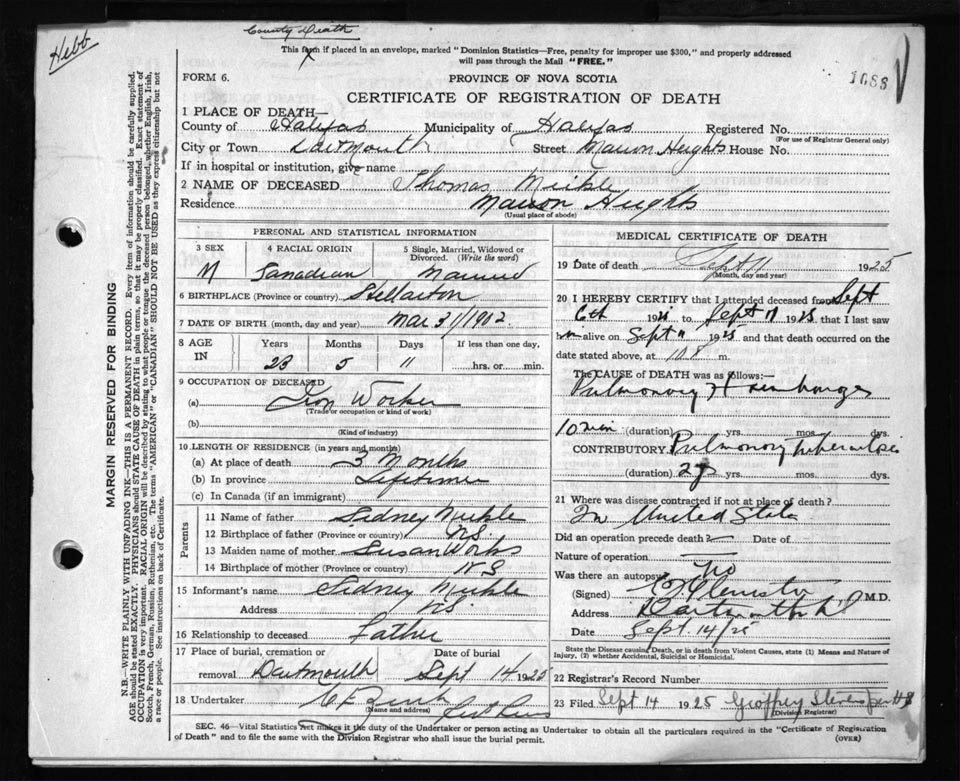 Hebb
County Death
This form if placed in an envelope, marked "Dominion Statistics—Free, penalty for improper use $300," and properly addressed
will pass through the Mail "FREE."
FORM 6.
PROVINCE OF NOVA SCOTIA
1688
CERTIFICATE OF REGISTRATION OF DEATH
1 PLACE OF DEATH—
County of Halifax Municipality of Halifax Registered No.
(For use of Registrar General only)
City or Town Dartmouth Street Marion Heights House No.
If in hospital or institution, give name
2 NAME OF DECEASED Thomas Meikle
Residence Marion Heights
(Usual place of abode)
PERSONAL AND STATISTICAL INFORMATION
3 SEX 4 RACIAL ORIGIN 5 Single, Married, Widowed or
Divorced. (Write the word)
M Canadian Married
6 BIRTHPLACE (Province or country) Stellarton
7 DATE OF BIRTH (month, day and year) Mar 31/1902
8 AGE IN Years Months Days If less than one day,
23 5 11 hrs. or min.
9 OCCUPATION OF DECEASED
(a) Iron Worker
(Trade or occupation or kind of work)
(b)
(Kind of industry)
10 LENGTH OF RESIDENCE (in years and months)
(a) At place of death 3 Months
(b) In province Lifetime
(c) In Canada (if an immigrant)
Parents
11 Name of father Sidney Meikle
12 Birthplace of father (Province or country) NS
13 Maiden name of mother Susan Works
14 Birthplace of mother (Province or country) NS
15 Informant's name Sidney Meikle
Address NS
16 Relationship to deceased Father
17 Place of burial, cremation or Date of burial
removal Dartmouth Sept 14 1925
18 Undertaker
(Name and address)
MEDICAL CERTIFICATE OF DEATH
19 Date of death Sept 11 1925
(Month, day and year)
20 I HEREBY CERTIFY that I attended deceased from Sept
6th 192 to Sept 11 1925 that I last saw
him alive on Sept 11 1925 and that death occurred on the
date stated above, at m.
The CAUSE of DEATH was as follows:—
Pulmonary Haemhorrage
10 min (duration) yrs. mos. dys.
CONTRIBUTORY. Pulmonary tuberculosis
(duration) 2 yrs mos dys.
21 Where was disease contracted if not at place of death?
In United States
Did an operation precede death? Date of
Nature of operation
Was there an autopsy No
(Signed) M.D.
Address Dartmouth
Date Sept. 14/25
State the Disease causing Death, or in death from Violent Causes, state (1) Means and Nature of
Injury, (2) whether Accidental, Suicidal or Homicidal.
22 Registrar's Record Number
23 Filed Sept 14 1925 Geoffrey Stevens
(Division Registrar)
SEC. 46—Vital Statistics Act makes it the duty of the Undertaker or person acting as Undertaker to obtain all the particulars required in the "Certificate of Registration
of Death" and to file the same with the Division Registrar who shall issue the burial permit.
(OVER)
MARGIN RESERVED FOR BINDING
N.B.—WRITE PLAINLY WITH UNFADING INK—THIS IS A PERMANENT RECORD. Every item of information should be carefully supplied.
AGE should be stated EXACTLY. PHYSICIANS should STATE CAUSE OF DEATH in plain terms, so that it may be properly classified. Exact statement of
OCCUPATION is very important. RACIAL ORIGIN will be described by stating to what people or tongue the deceased person belonged, whether English, Irish,
Scotch, French, German, Russian, Ruthenian, etc. The terms "AMERICAN" or "CANADIAN" SHOULD NOT BE USED as they express citizenship but not
a race or people. See instructions on back of Certificate.